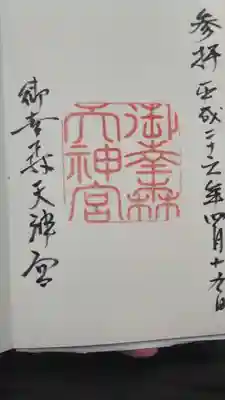 参拝 平成二十六年四月十 日
御幸森
天神宮
御幸森天神宮